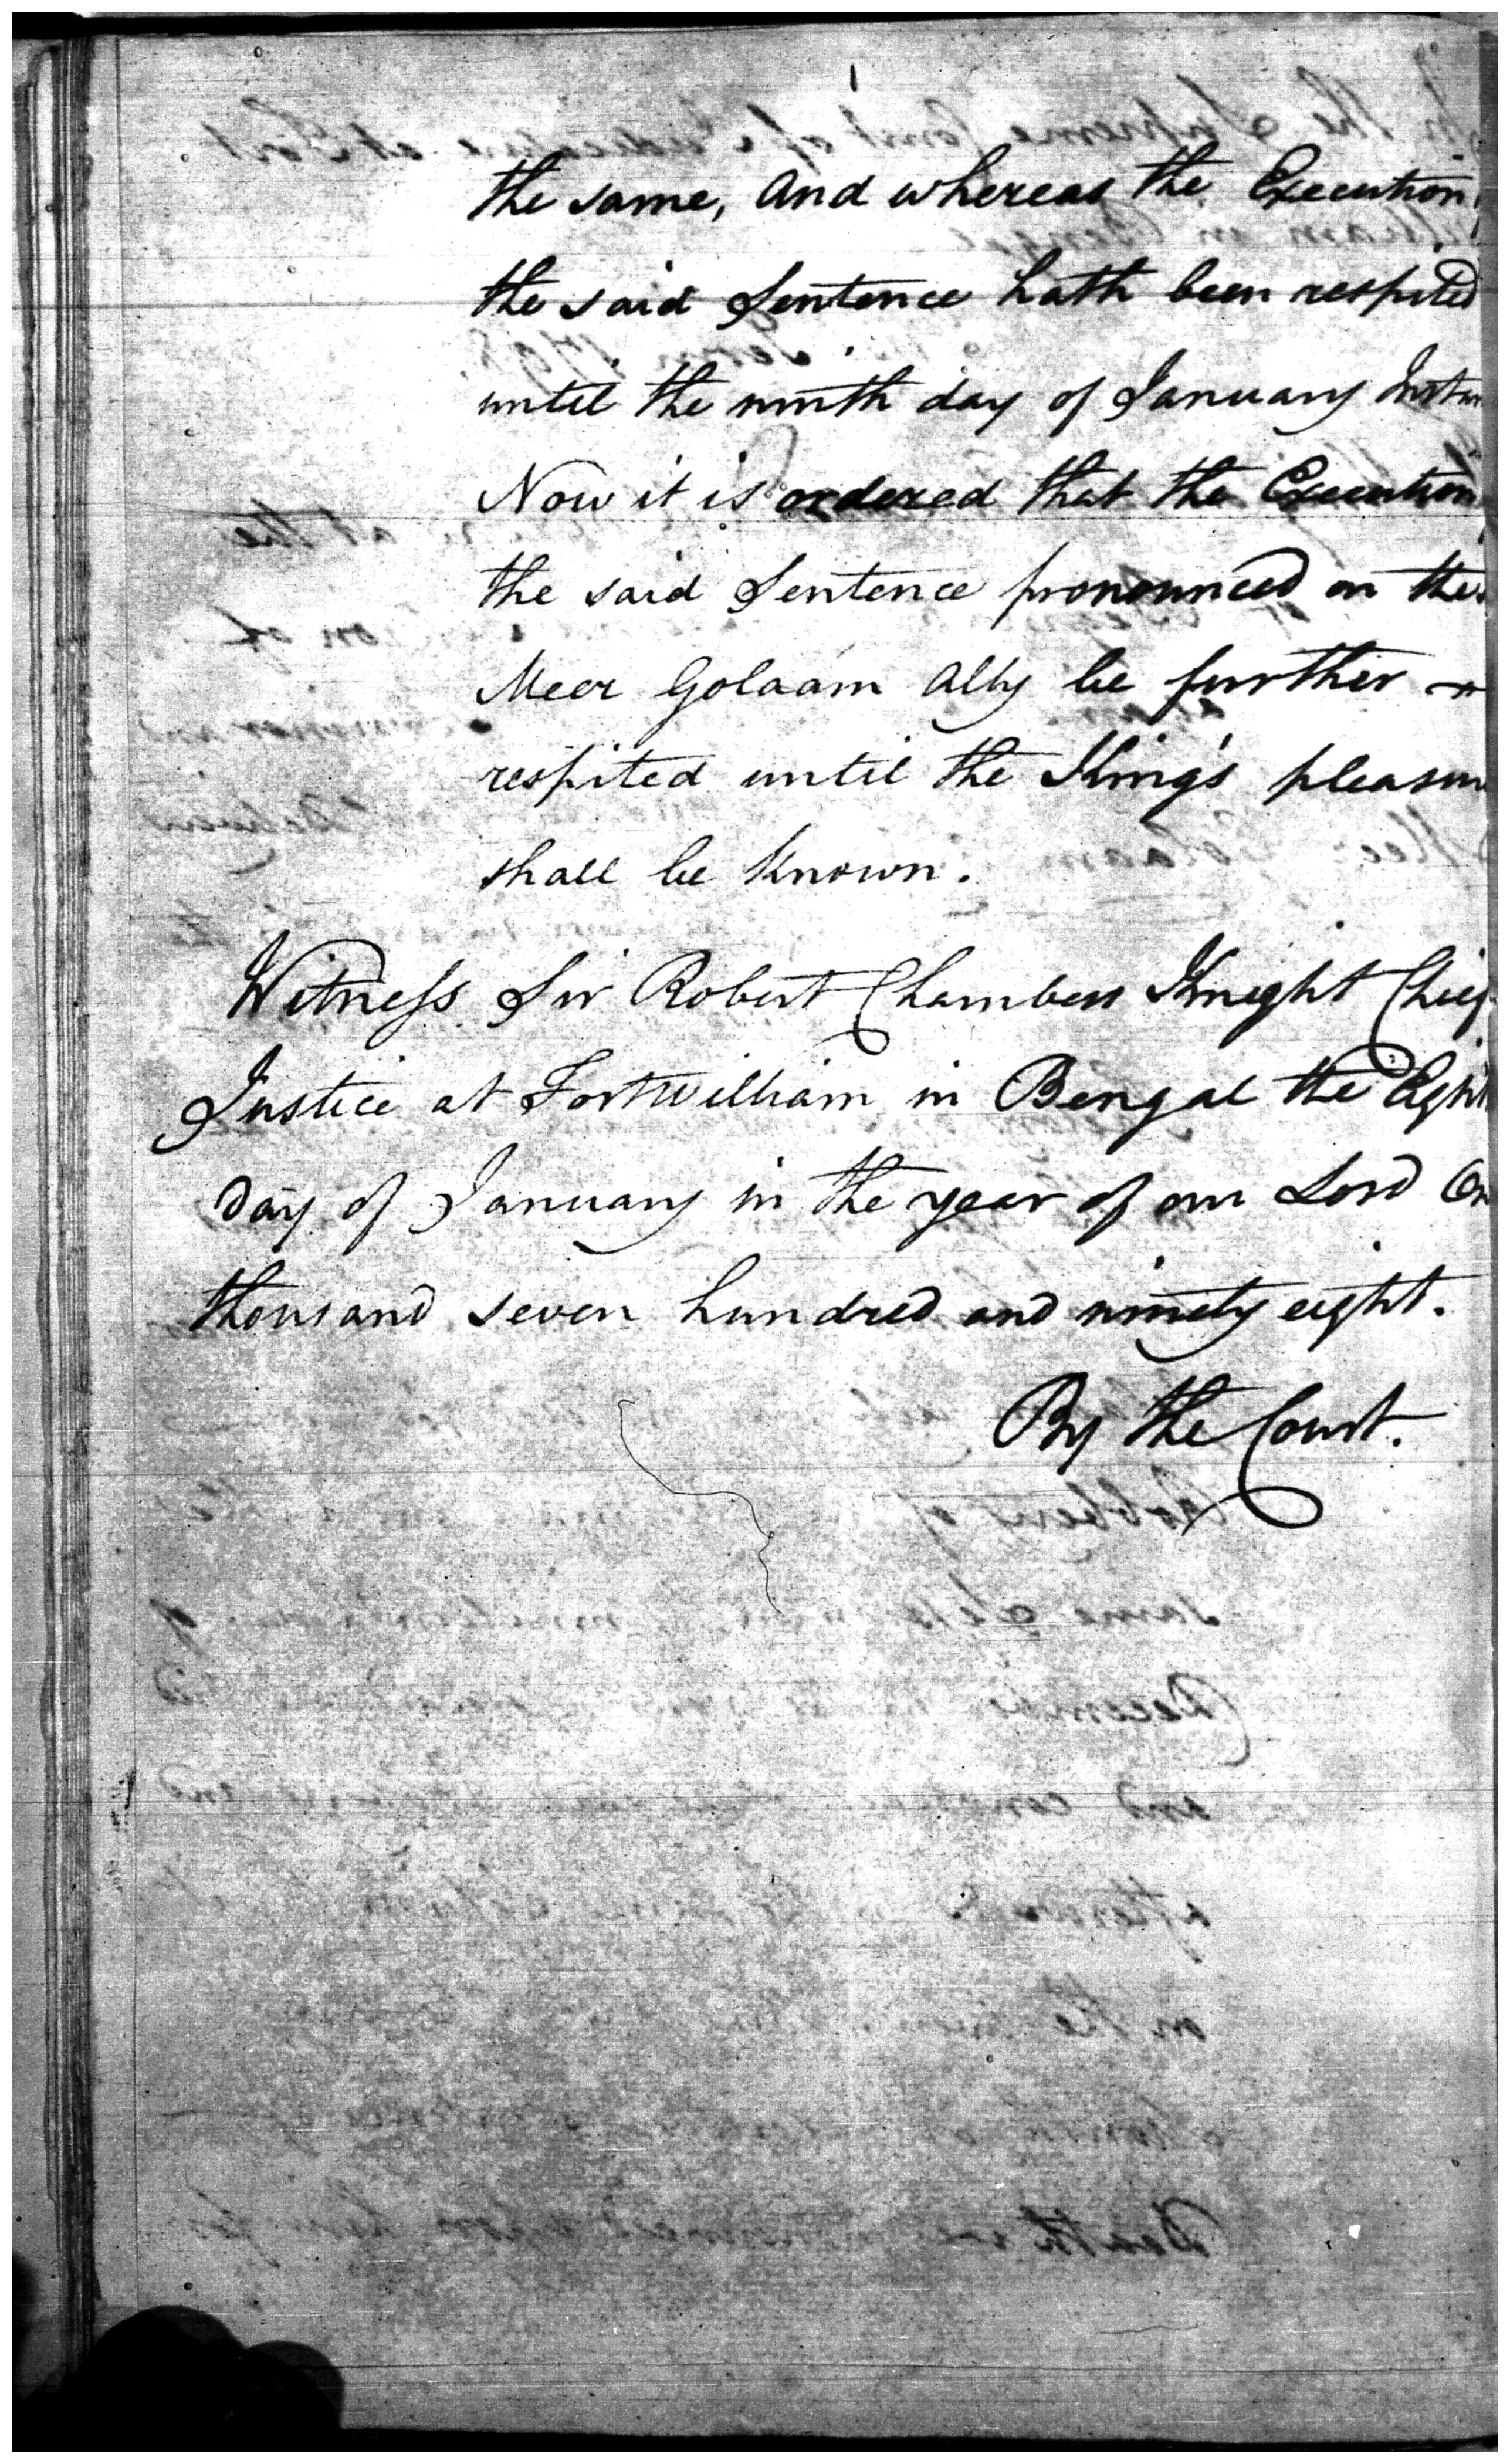 the same, And whereas the Execution
the said Sentence hath been respited
until the ninth day of January Insta
Now it is ordered that the Execution
the said Sentence pronounced on the
Meer Golaam Ally be further
respited until the King's pleasu
shall be known.
Witness Sir Robert Chambers Knight Chief
Justice at Fort William in Bengal the Eight
day of January in the year of our Lord On
thousand seven hundred and ninety eight.
By the Court.